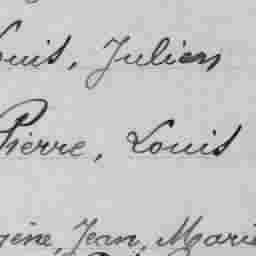 ouis, Julien
Pierre, Louis
gène, Jean, Marie